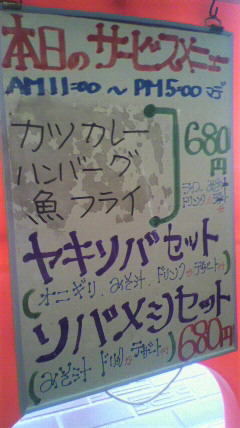 本日のサービスメニュー
AM11:00 ～ PM5:00 まで
カツカレー
ハンバーグ
魚フライ
680円
ライス、みそ汁
ドリンク
ヤキソバセット
(オニギリ、みそ汁、ドリンク or デザート)
ソバメシセット
(みそ汁 ドリンク or デザート)
680円